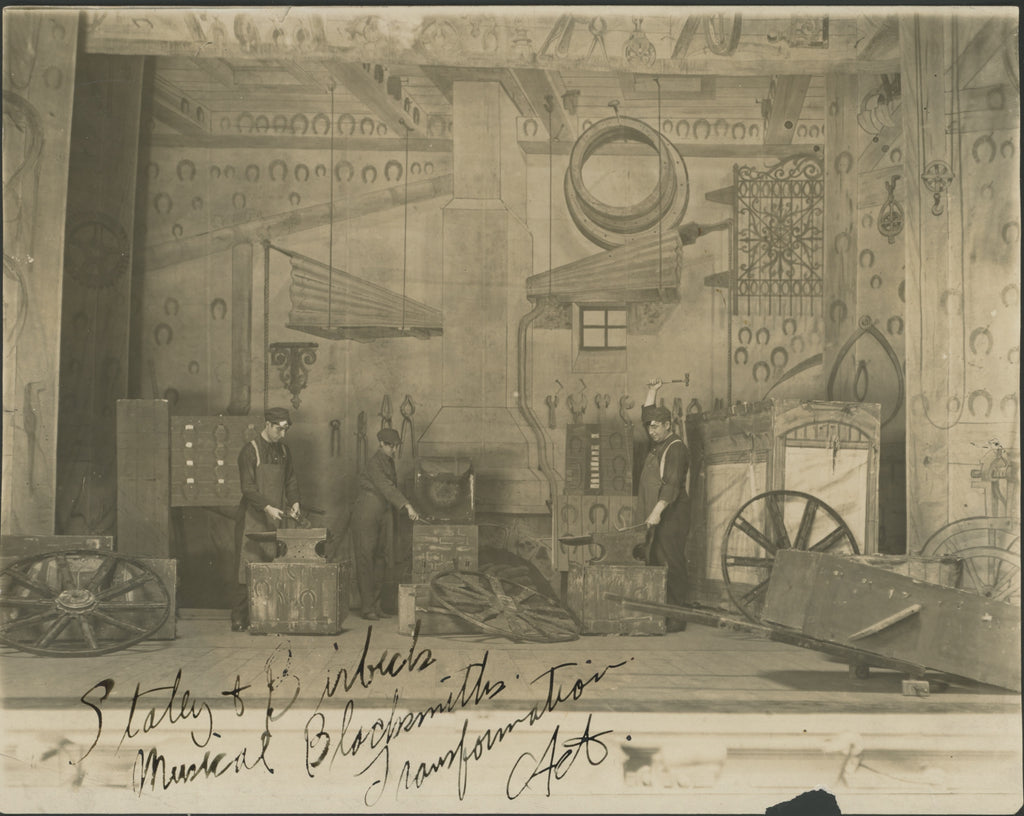 Staley & Birbeck
Musical Blacksmiths.
Transformation
Act.